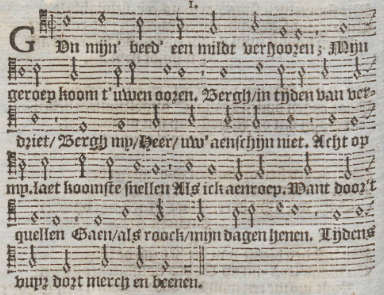 1.
GUn mijn' beed' een mildt verhooren; Mijn
geroep koom t'uwen ooren. Bergh/in tijden van ver-
driet/ Bergh my/Heer/uw' aenschijn niet. Acht op
my, laet koomste snellen Als ick aenroep. Want door't
quellen Gaen/als roock/mijn dagen henen, Tijdens
vuyr dort merch en beenen.